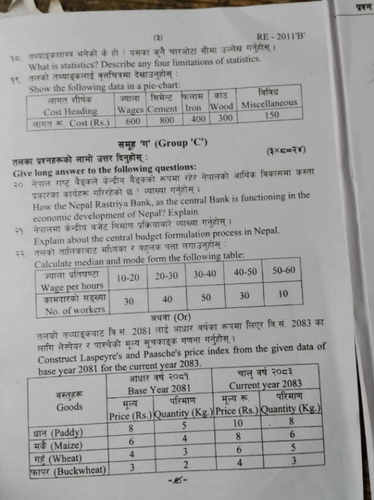 प्रश्न
(३)
RE - 2011'B'
१८. तथ्याङ्कशास्त्र भनेको के हो ? यसका कुनै चारओटा सीमा उल्लेख गर्नुहोस् ।
What is statistics? Describe any four limitations of statistics.
१९. तलको तथ्याङ्कलाई वृत्तचित्रमा देखाउनुहोस् :
Show the following data in a pie-chart:
लागत शीर्षक ज्याला सिमेन्ट फलाम काठ विविध
Cost Heading Wages Cement Iron Wood Miscellaneous
लागत रू. Cost (Rs.) 600 800 400 300 150
समूह 'ग' (Group 'C')
तलका प्रश्नहरूको लामो उत्तर दिनुहोस् : (३×८=२४)
Give long answer to the following questions:
२०. नेपाल राष्ट्र बैङ्कले केन्द्रीय बैङ्कको रूपमा रहेर नेपालको आर्थिक विकासमा कस्ता
प्रकारका कार्यहरू गरिरहेको छ ? व्याख्या गर्नुहोस् ।
How the Nepal Rastriya Bank, as the central Bank is functioning in the
economic development of Nepal? Explain
२१. नेपालमा केन्द्रीय बजेट निर्माण प्रक्रियाबारे व्याख्या गर्नुहोस् ।
Explain about the central budget formulation process in Nepal.
२२. तलको तालिकाबाट मध्यिका र बहुलक पत्ता लगाउनुहोस् :
Calculate median and mode form the following table:
ज्याला प्रतिघण्टा 10-20 20-30 30-40 40-50 50-60
Wage per hours
कामदारको सङ्ख्या 30 40 50 30 10
No. of workers
अथवा (Or)
तलको तथ्याङ्कबाट वि.सं. 2081 लाई आधार वर्षका रूपमा लिएर वि.सं. 2083 का
लागि लेस्पेयर र पास्चेको मूल्य सूचकाङ्क गणना गर्नुहोस् ।
Construct Laspeyre's and Paasche's price index from the given data of
base year 2081 for the current year 2083.
वस्तुहरू आधार वर्ष २०८१ चालु वर्ष २०८३
Goods Base Year 2081 Current year 2083
मूल्य परिमाण मूल्य रू. परिमाण
Price (Rs.) Quantity (Kg.) Price (Rs.) Quantity (Kg.)
धान (Paddy) 8 5 10 8
मकै (Maize) 6 4 8 6
गहुँ (Wheat) 4 3 6 5
फापर (Buckwheat) 3 2 4 3